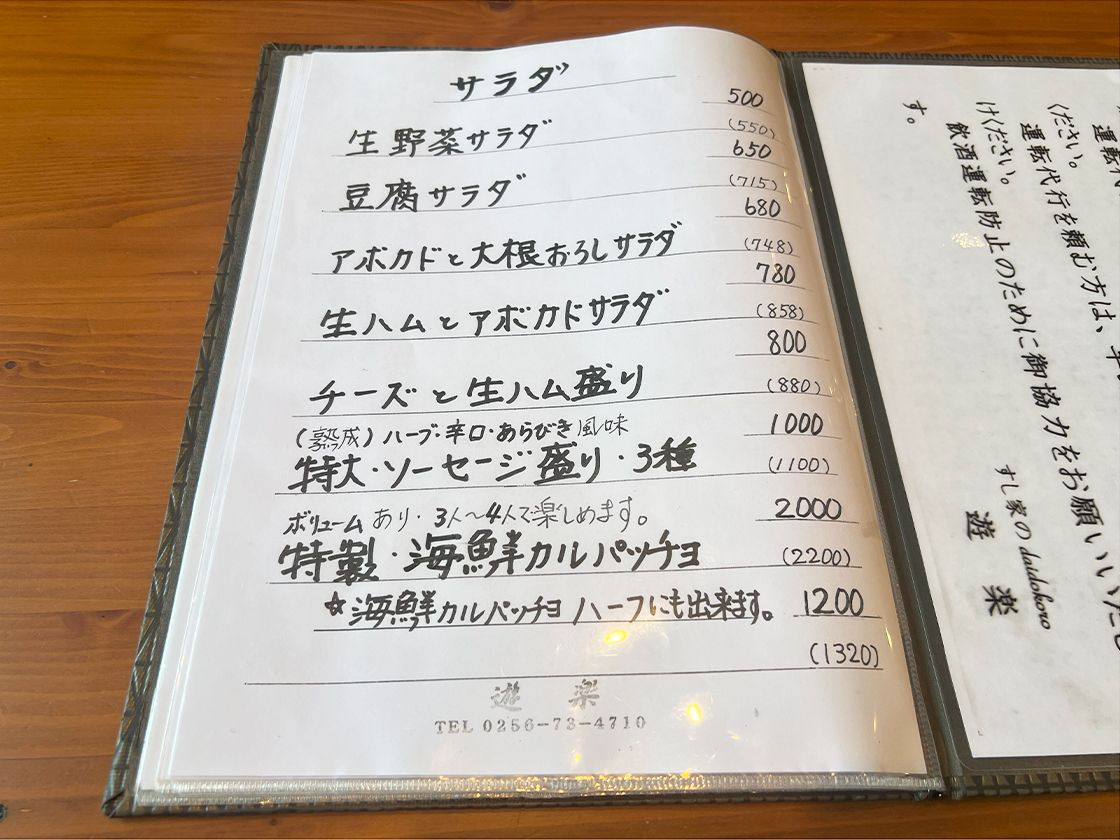 サラダ
生野菜サラダ 500
(550)
豆腐サラダ 650
(715)
アボカドと大根おろしサラダ 680
(748)
生ハムとアボカドサラダ 780
(858)
チーズと生ハム盛り 800
(880)
(熟成)ハーブ・辛口・あらびき風味
特大・ソーセージ盛り・3種 1000
(1100)
ボリュームあり・3人〜4人で楽しめます。
特製・海鮮カルパッチョ 2000
(2200)
☆海鮮カルパッチョ ハーフにも出来ます。 1200
(1320)
遊楽
TEL 0256-73-4710
運転代行を頼む方は、
ください。
飲酒運転防止のために御協力をお願いいたし
けください。
す。
すし家のdaidokoro
遊楽